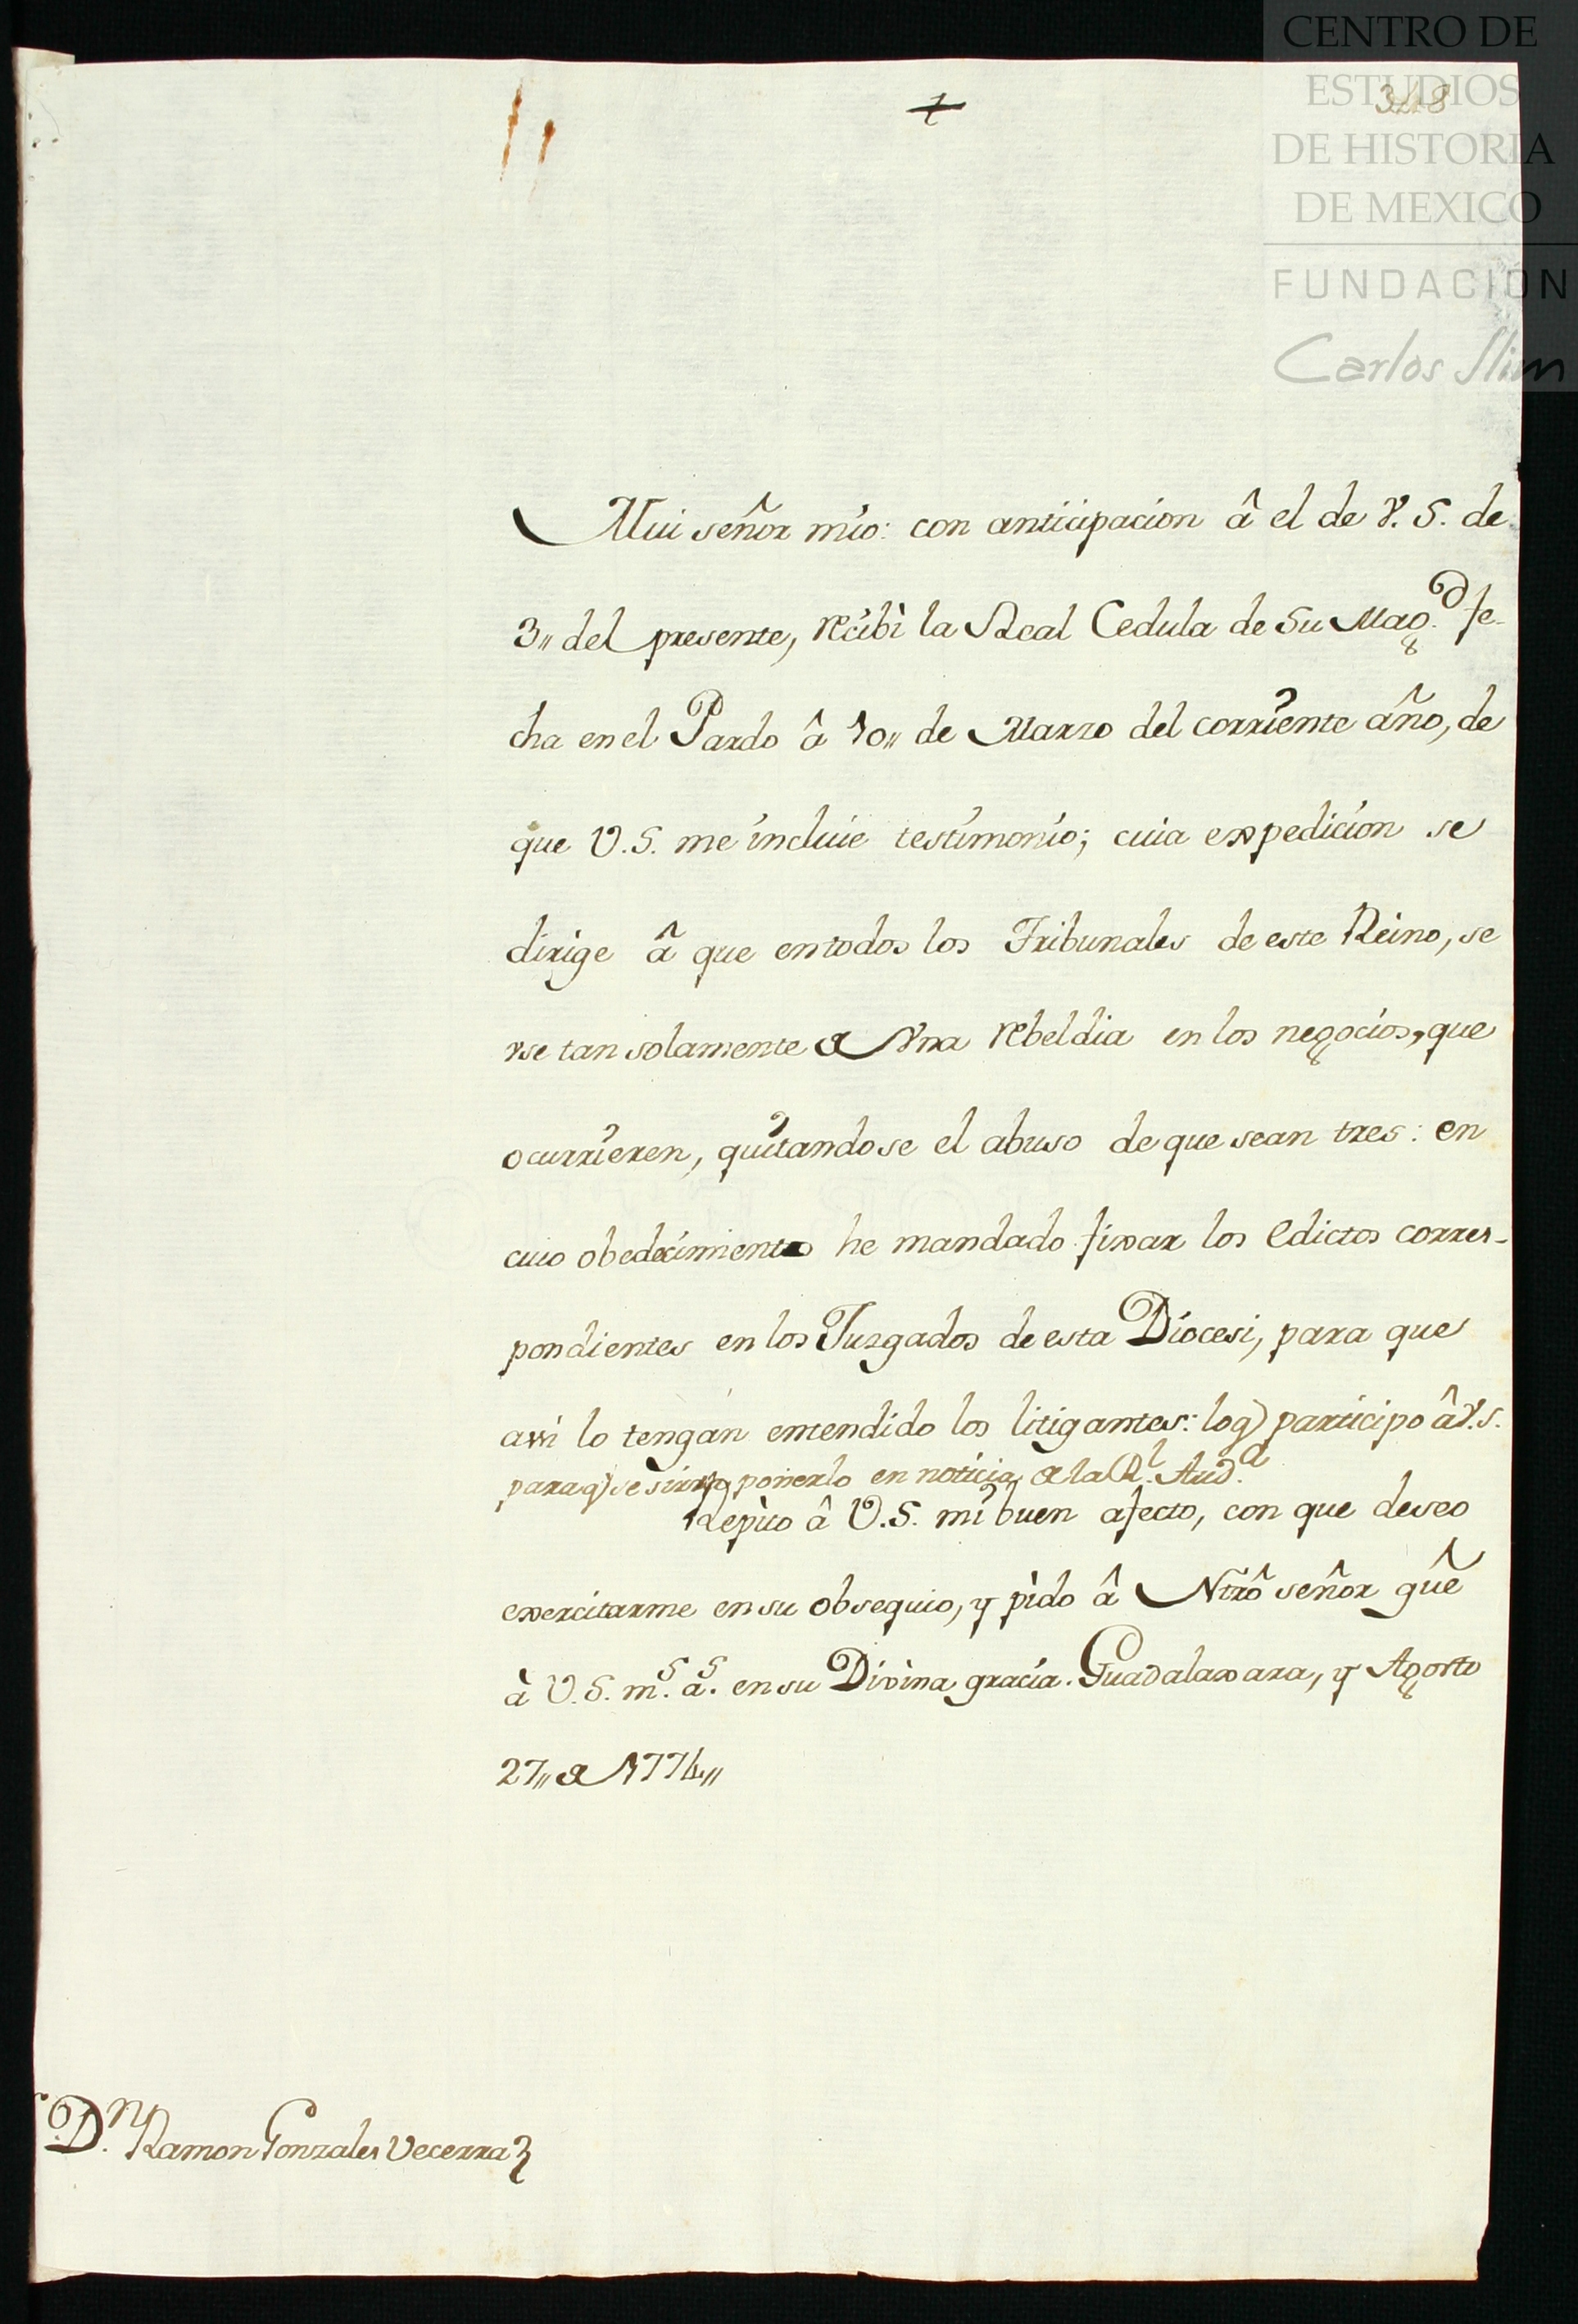 CENTRO DE
ESTUDIOS
DE HISTORIA
DE MEXICO
FUNDACION
Carlos Slim
348
Mui señor mío: con anticipacion â el de V. S. de
3,, del presente, recibì la Real Cedula de Su Mag.d fe-
cha en el Pardo â 10,, de Marzo del corriente año, de
que V. S. me incluie testimonio; cuia expedicion se
dirige â que en todos los Tribunales de este Reino, se
vse tan solamente de Vna rebeldia en los negocios, que
ocurrieren, quitandose el abuso de que sean tres: en
cuio obedecimiento he mandado fixar los Edictos corres-
pondientes en los Juzgados de esta Diocesi, para que
assi lo tengan entendido los litigantes: lo q) participo â V. S.
para q) se sirva ponerlo en noticia de la R.l Aud.a
Repito â V. S. mi buen afecto, con que deseo
exercitarme en su obsequio, y pido â Ntrô señor gûe
à V. S. m.s a.s en su Divina gracia. Guadalaxara, y Agosto
27,, de 1774,,
D.n Ramon Gonzales Vecerra